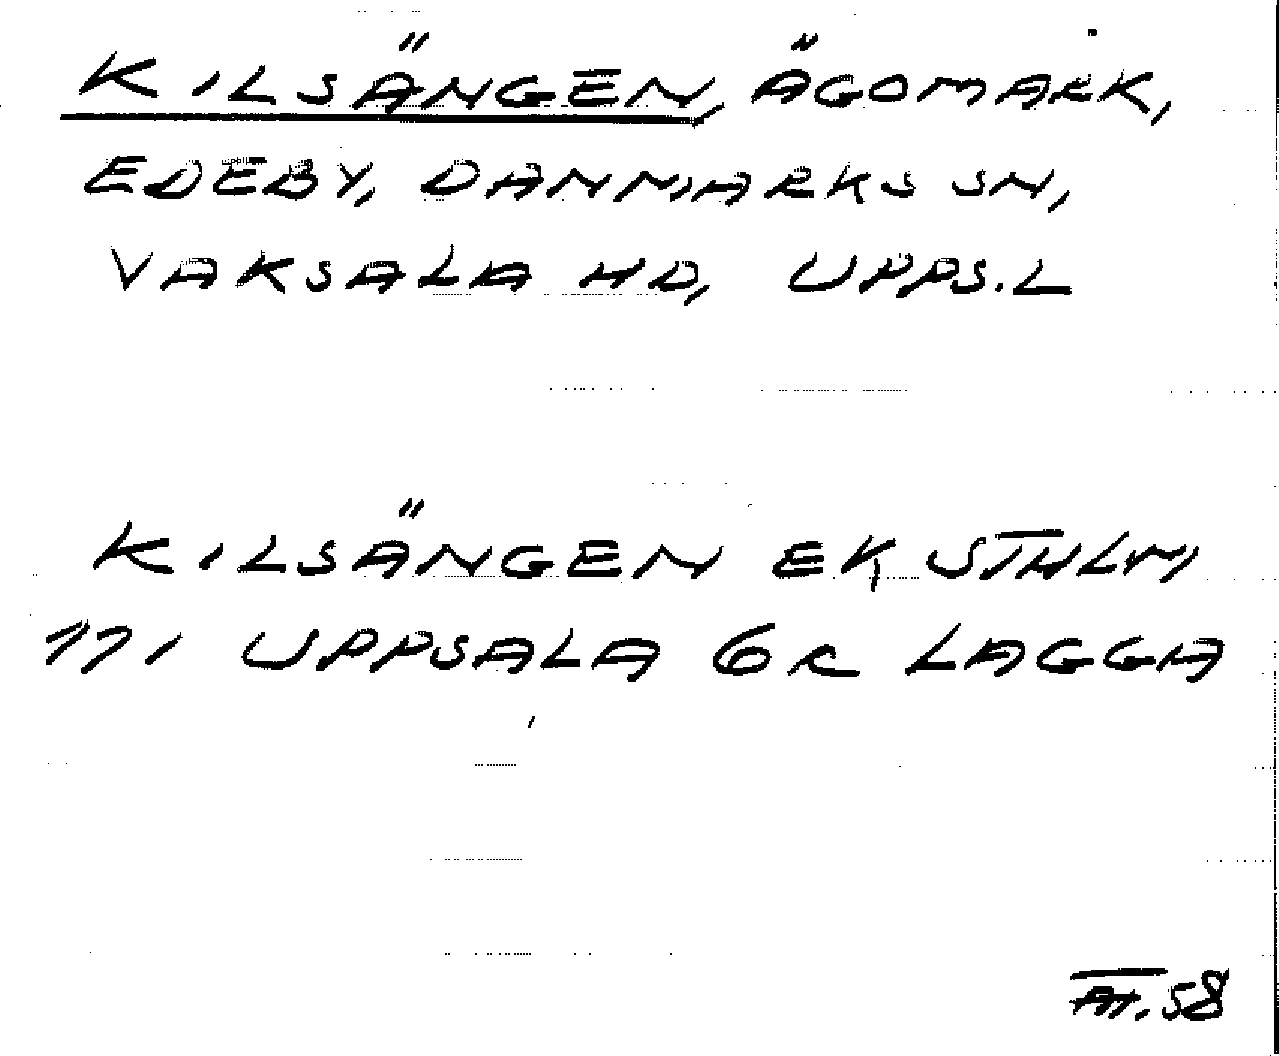 KILSÄNGEN, ÄGOMARK,
EDEBY, DANMARKS SN,
VAKSALA HD, UPPS.L
KILSÄNGEN EK STHLM
111 UPPSALA 6C LAGGA
58